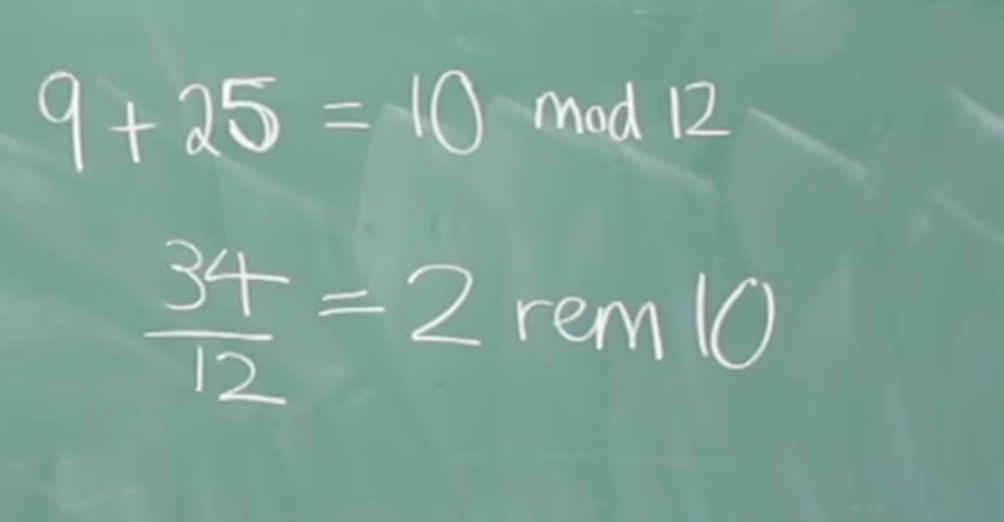 9 + 25 = 10 mod 12
34/12 = 2 rem 10